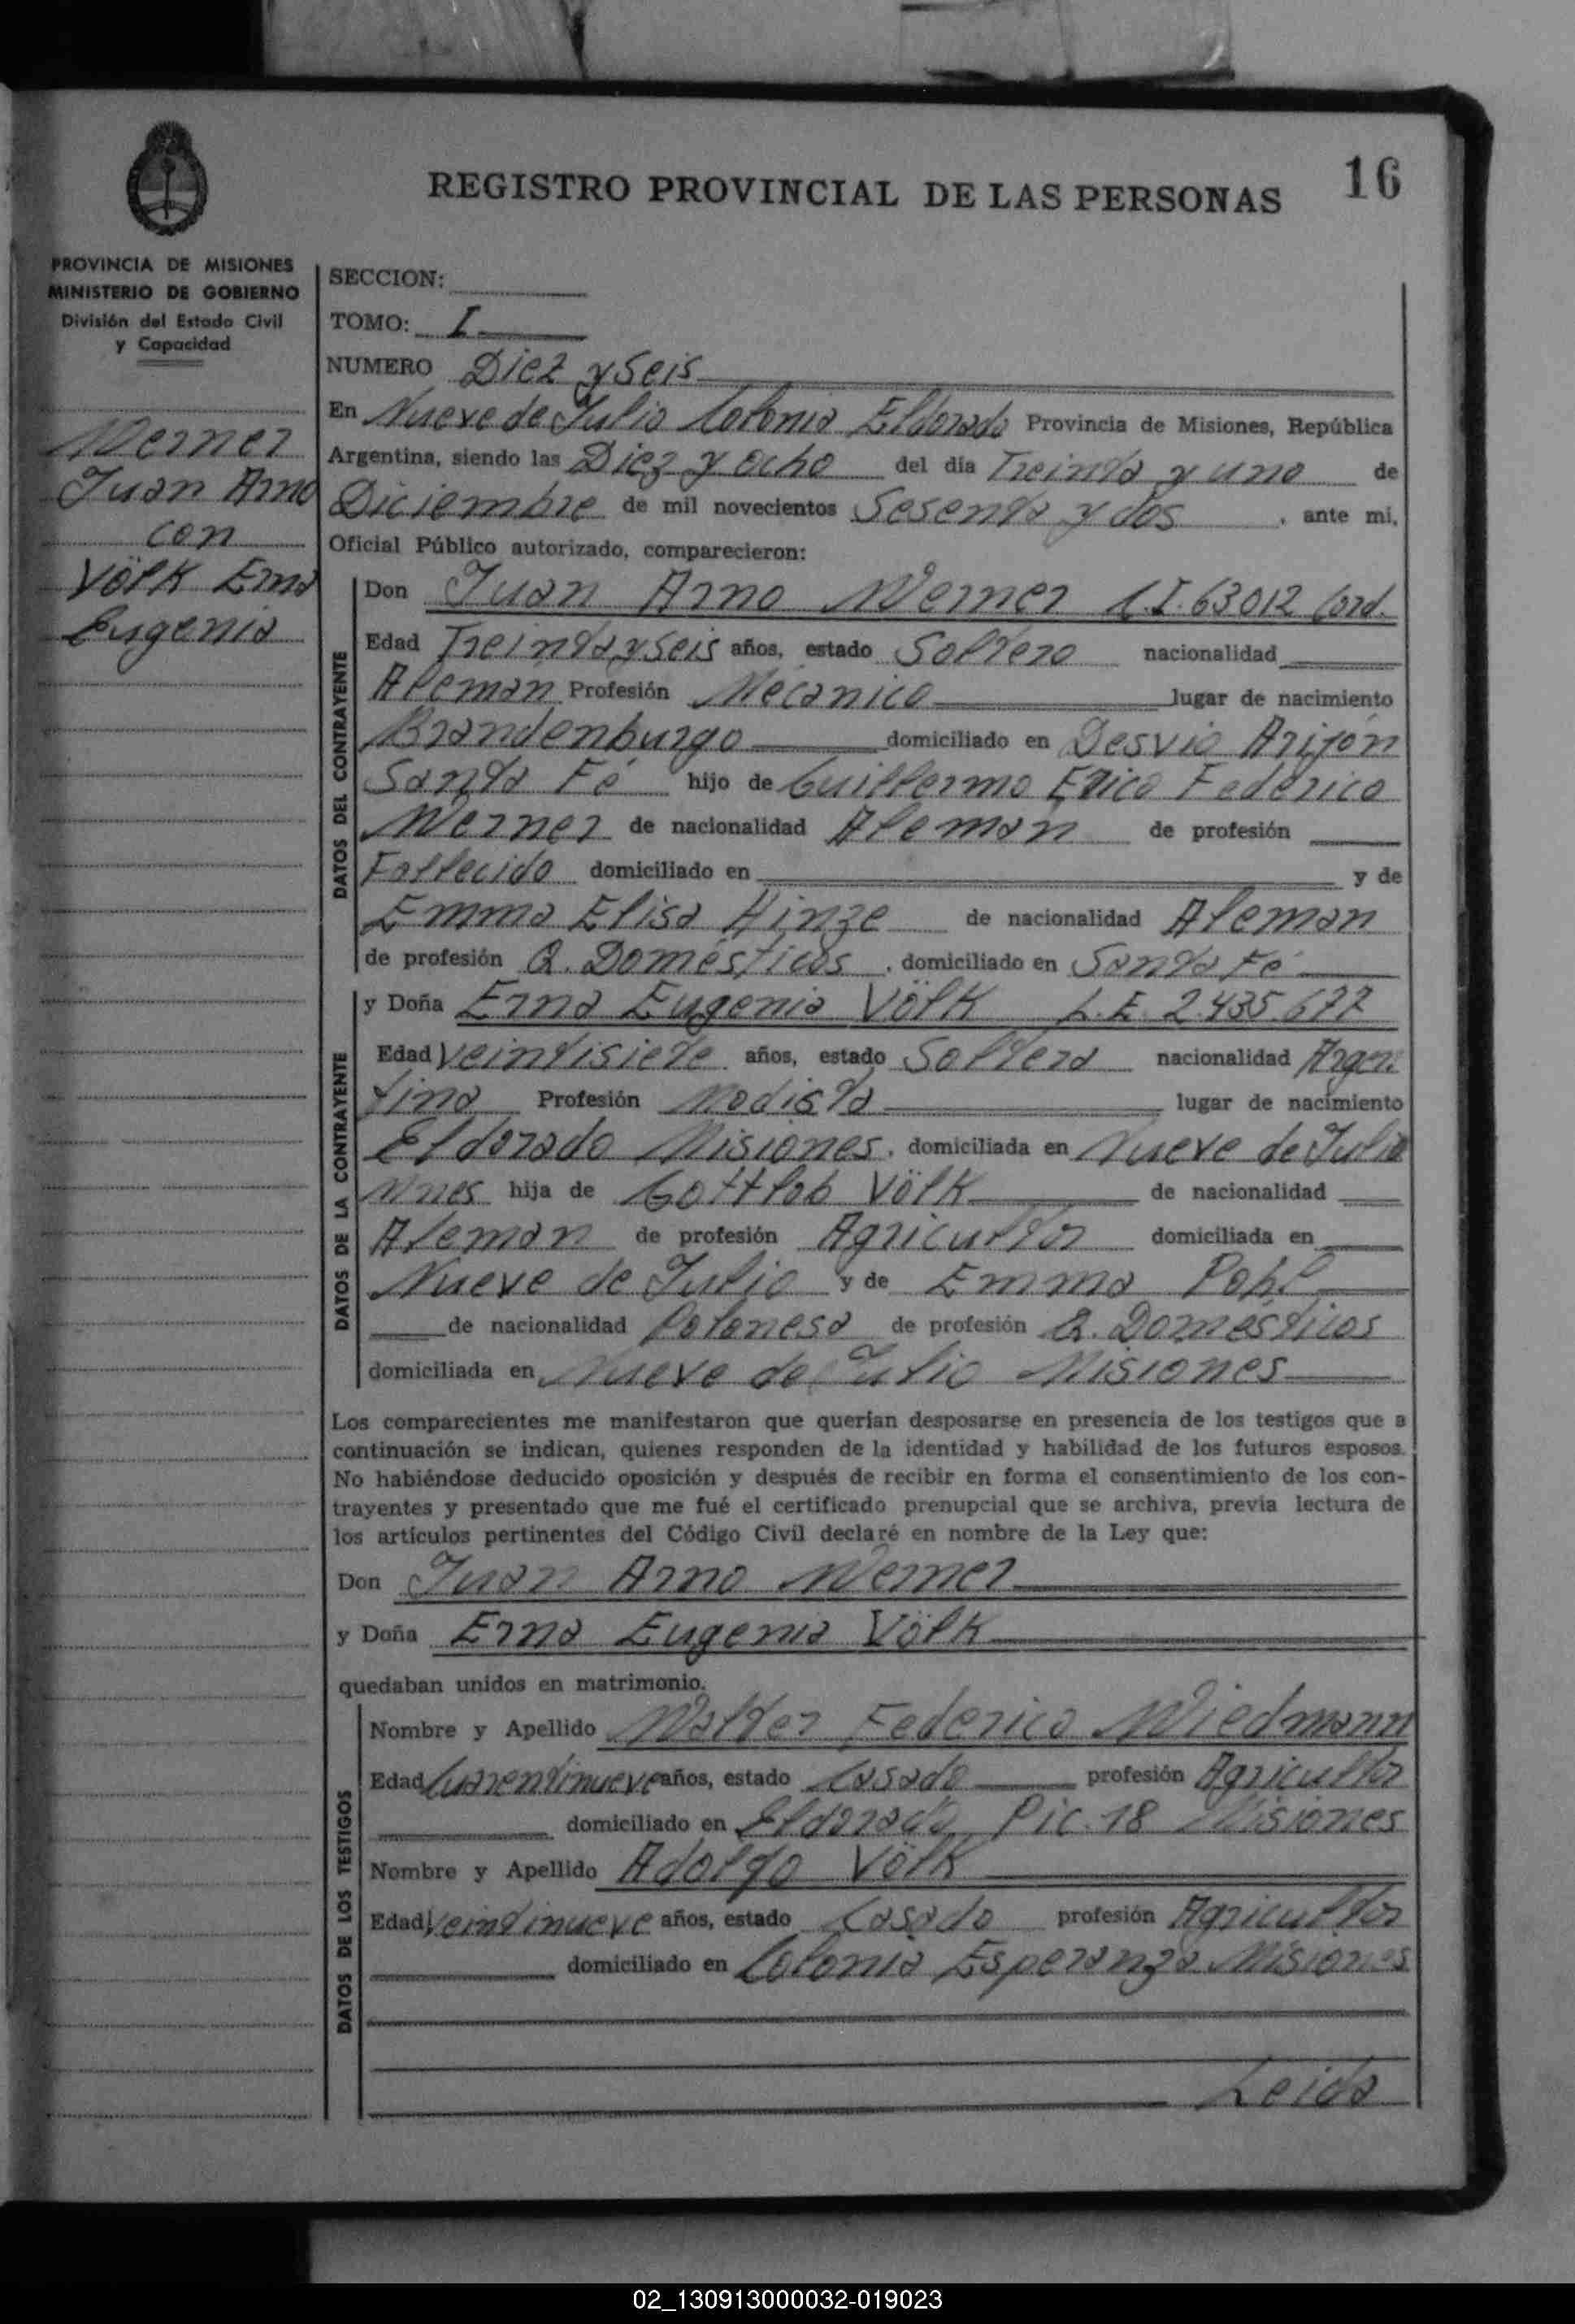 16
REGISTRO PROVINCIAL DE LAS PERSONAS
PROVINCIA DE MISIONES
MINISTERIO DE GOBIERNO
División del Estado Civil
y Capacidad
Werner
Juan Arno
con
Völk Erna
Eugenia
SECCION:
TOMO: I
NUMERO Diez y seis
En Nueve de Julio Colonia Eldorado Provincia de Misiones, República
Argentina, siendo las Diez y ocho del día Treinta y uno de
Diciembre de mil novecientos Sesenta y dos, ante mi,
Oficial Público autorizado, comparecieron:
DATOS DEL CONTRAYENTE
Don Juan Arno Werner C.I. 63012 Cord.
Edad Treinta y seis años, estado Soltero nacionalidad
Aleman Profesión Mecanico lugar de nacimiento
Brandenburgo domiciliado en Desvio Arijón
Santa Fé hijo de Guillermo Erico Federico
Werner de nacionalidad Aleman de profesión
Fallecido domiciliado en y de
Emma Elisa Hinze de nacionalidad Aleman
de profesión Q. Domésticos, domiciliado en Santa Fé
DATOS DE LA CONTRAYENTE
y Doña Erna Eugenia Völk L.E. 2.435.677
Edad Veintisiete años, estado Soltera nacionalidad Argen
tina Profesión Modista lugar de nacimiento
Eldorado Misiones, domiciliada en Nueve de Julio
Mnes hija de Gottlob Völk de nacionalidad
Aleman de profesión Agricultor domiciliada en
Nueve de Julio y de Emma Pohl
de nacionalidad Polonesa de profesión Q. Domésticos
domiciliada en Nueve de Julio Misiones
Los comparecientes me manifestaron que querían desposarse en presencia de los testigos que a
continuación se indican, quienes responden de la identidad y habilidad de los futuros esposos.
No habiéndose deducido oposición y después de recibir en forma el consentimiento de los con-
trayentes y presentado que me fué el certificado prenupcial que se archiva, previa lectura de
los artículos pertinentes del Código Civil declaré en nombre de la Ley que:
Don Juan Arno Werner
y Doña Erna Eugenia Völk
quedaban unidos en matrimonio.
DATOS DE LOS TESTIGOS
Nombre y Apellido Walter Federico Wiedmann
Edad Cuarentinueve años, estado Casado profesión Agricultor
domiciliado en Eldorado Pic. 18 Misiones
Nombre y Apellido Adolfo Völk
Edad Veintinueve años, estado Casado profesión Agricultor
domiciliado en Colonia Esperanza Misiones
Leida
02_130913000032-019023